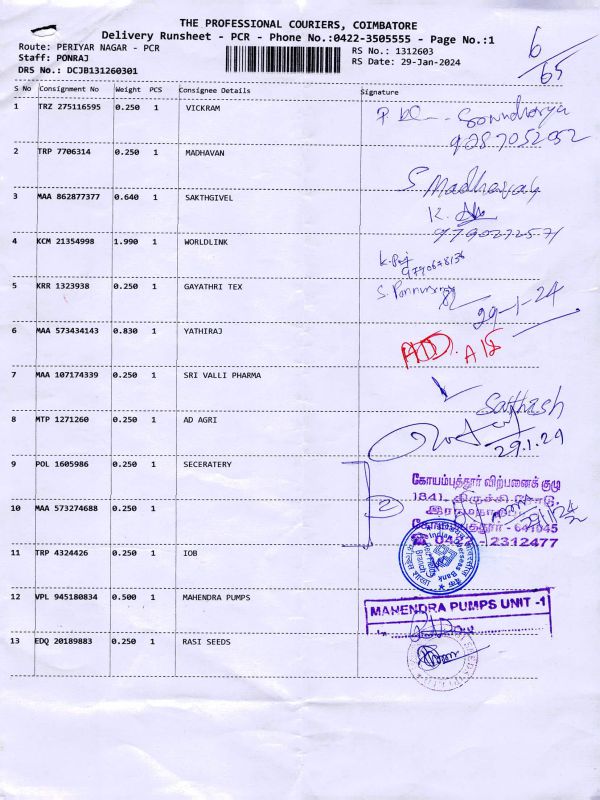 THE PROFESSIONAL COURIERS, COIMBATORE
Delivery Runsheet - PCR - Phone No.:0422-3505555 - Page No.:1
Route: PERIYAR NAGAR - PCR
RS No.: 1312603
Staff: PONRAJ
RS Date: 29-Jan-2024
DRS No.: DCJB131260301
6/65
S No Consignment No Weight PCS Consignee Details Signature
1 TRZ 275116595 0.250 1 VICKRAM
Soundharya
9287052052
2 TRP 7706314 0.250 1 MADHAVAN
S. Madhavan
3 MAA 862877377 0.640 1 SAKTHGIVEL
K.
4 KCM 21354998 1.990 1 WORLDLINK
5 KRR 1323938 0.250 1 GAYATHRI TEX
29-1-24
6 MAA 573434143 0.830 1 YATHIRAJ
7 MAA 107174339 0.250 1 SRI VALLI PHARMA
Sathash
8 MTP 1271260 0.250 1 AD AGRI
29.1.29
9 POL 1605986 0.250 1 SECERATERY
கோயம்புத்தூர் விற்பனைக் குழு
1841, திருச்சி ரோடு,
இராமநாதபுரம்
2
10 MAA 573274688 0.250 1
கோயம்புத்தூர் - 641045
☎ 0422 - 2312477
11 TRP 4324426 0.250 1 IOB
Indian Overseas Bank
12 VPL 945180834 0.500 1 MAHENDRA PUMPS
MAHENDRA PUMPS UNIT -1
13 EDQ 20189883 0.250 1 RASI SEEDS